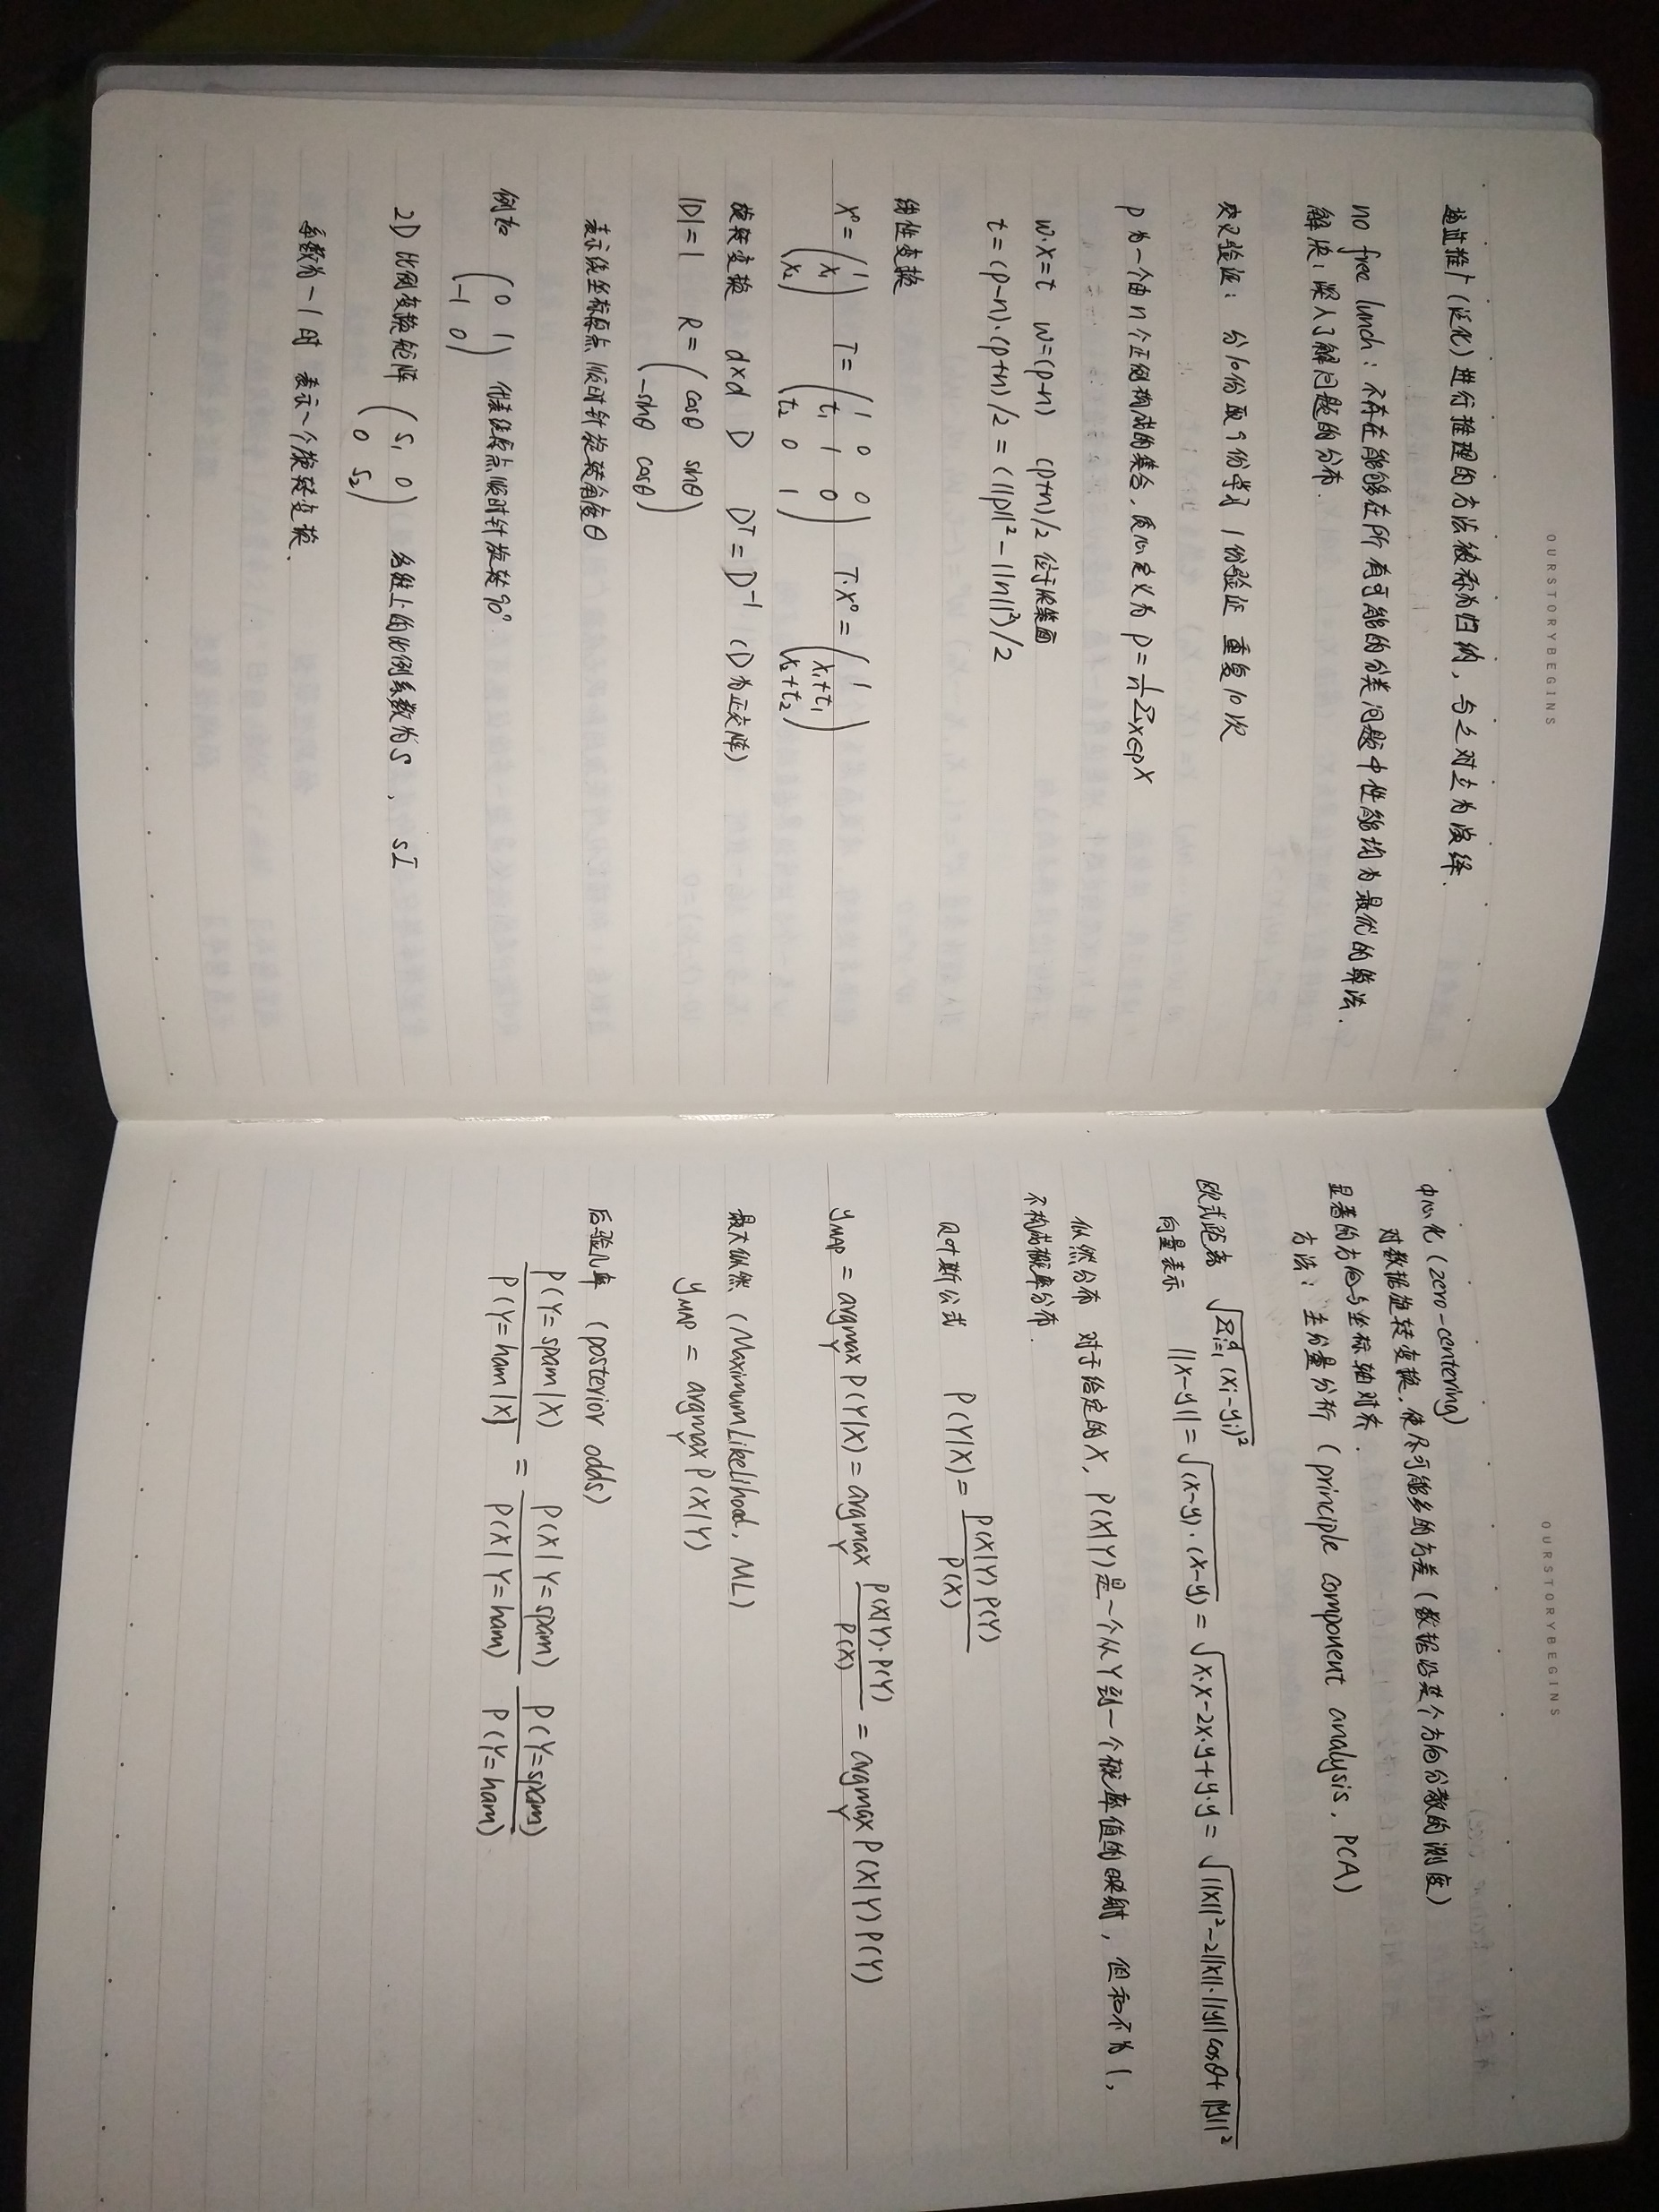 OURSTORYBEGINS
通过推广(泛化)进行推理的方法被称为归纳,与之对立为演绎.
no free lunch:不存在能够在所有可能的分类问题中性能均为最优的算法.
解决:深入了解问题的分布.
交叉验证: 分10份取9份学习 1份验证 重复10次
P为一个由n个正例构成的集合,质心定义为 p=1/n Σx∈p X
w·x=t w=(p-n) (p+n)/2 位于决策面
t=(p-n)·(p+n)/2=(||p||²-||n||²)/2
线性变换
X⁰=(1 x₁ x₂) T=(1 0 0 t₁ 1 0 t₂ 0 1) T·X⁰=(1 x₁+t₁ x₂+t₂)
旋转变换 d×d D Dᵀ=D⁻¹ (D为正交阵)
|D|=1 R=(cosθ sinθ -sinθ cosθ)
表示绕坐标原点顺时针旋转角度θ
例如 (0 1 -1 0) 代表绕原点顺时针旋转90°
2D比例变换矩阵 (S₁ 0 0 S₂) 各维上的比例系数为S, sI
系数为-1时 表示一个旋转变换.
OURSTORYBEGINS
中心化(zero-centering)
对数据旋转变换,使尽可能多的方差(数据沿某个方向分散的测度)
显著的方向与坐标轴对齐.
方法:主分量分析(principle component analysis, PCA)
欧式距离 √Σᵈᵢ₌₁(xᵢ-yᵢ)²
向量表示 ||x-y||=√(x-y)·(x-y)=√x·x-2x·y+y·y=√||x||²-2||x||·||y||cosθ+||y||²
似然分布 对于给定的X, P(X|Y)是一个从Y到一个概率值的映射,但和不为1,
不构成概率分布.
贝叶斯公式 P(Y|X)=P(X|Y)P(Y)/P(X)
yMAP=argmax Y P(Y|X)=argmax Y P(X|Y)·P(Y)/P(X)=argmax Y P(X|Y)P(Y)
最大似然(Maximum Likelihood, ML)
yMAP=argmax Y P(X|Y)
后验几率 (posterior odds)
P(Y=spam|X)/P(Y=ham|X)=P(X|Y=spam)/P(X|Y=ham) P(Y=spam)/P(Y=ham)